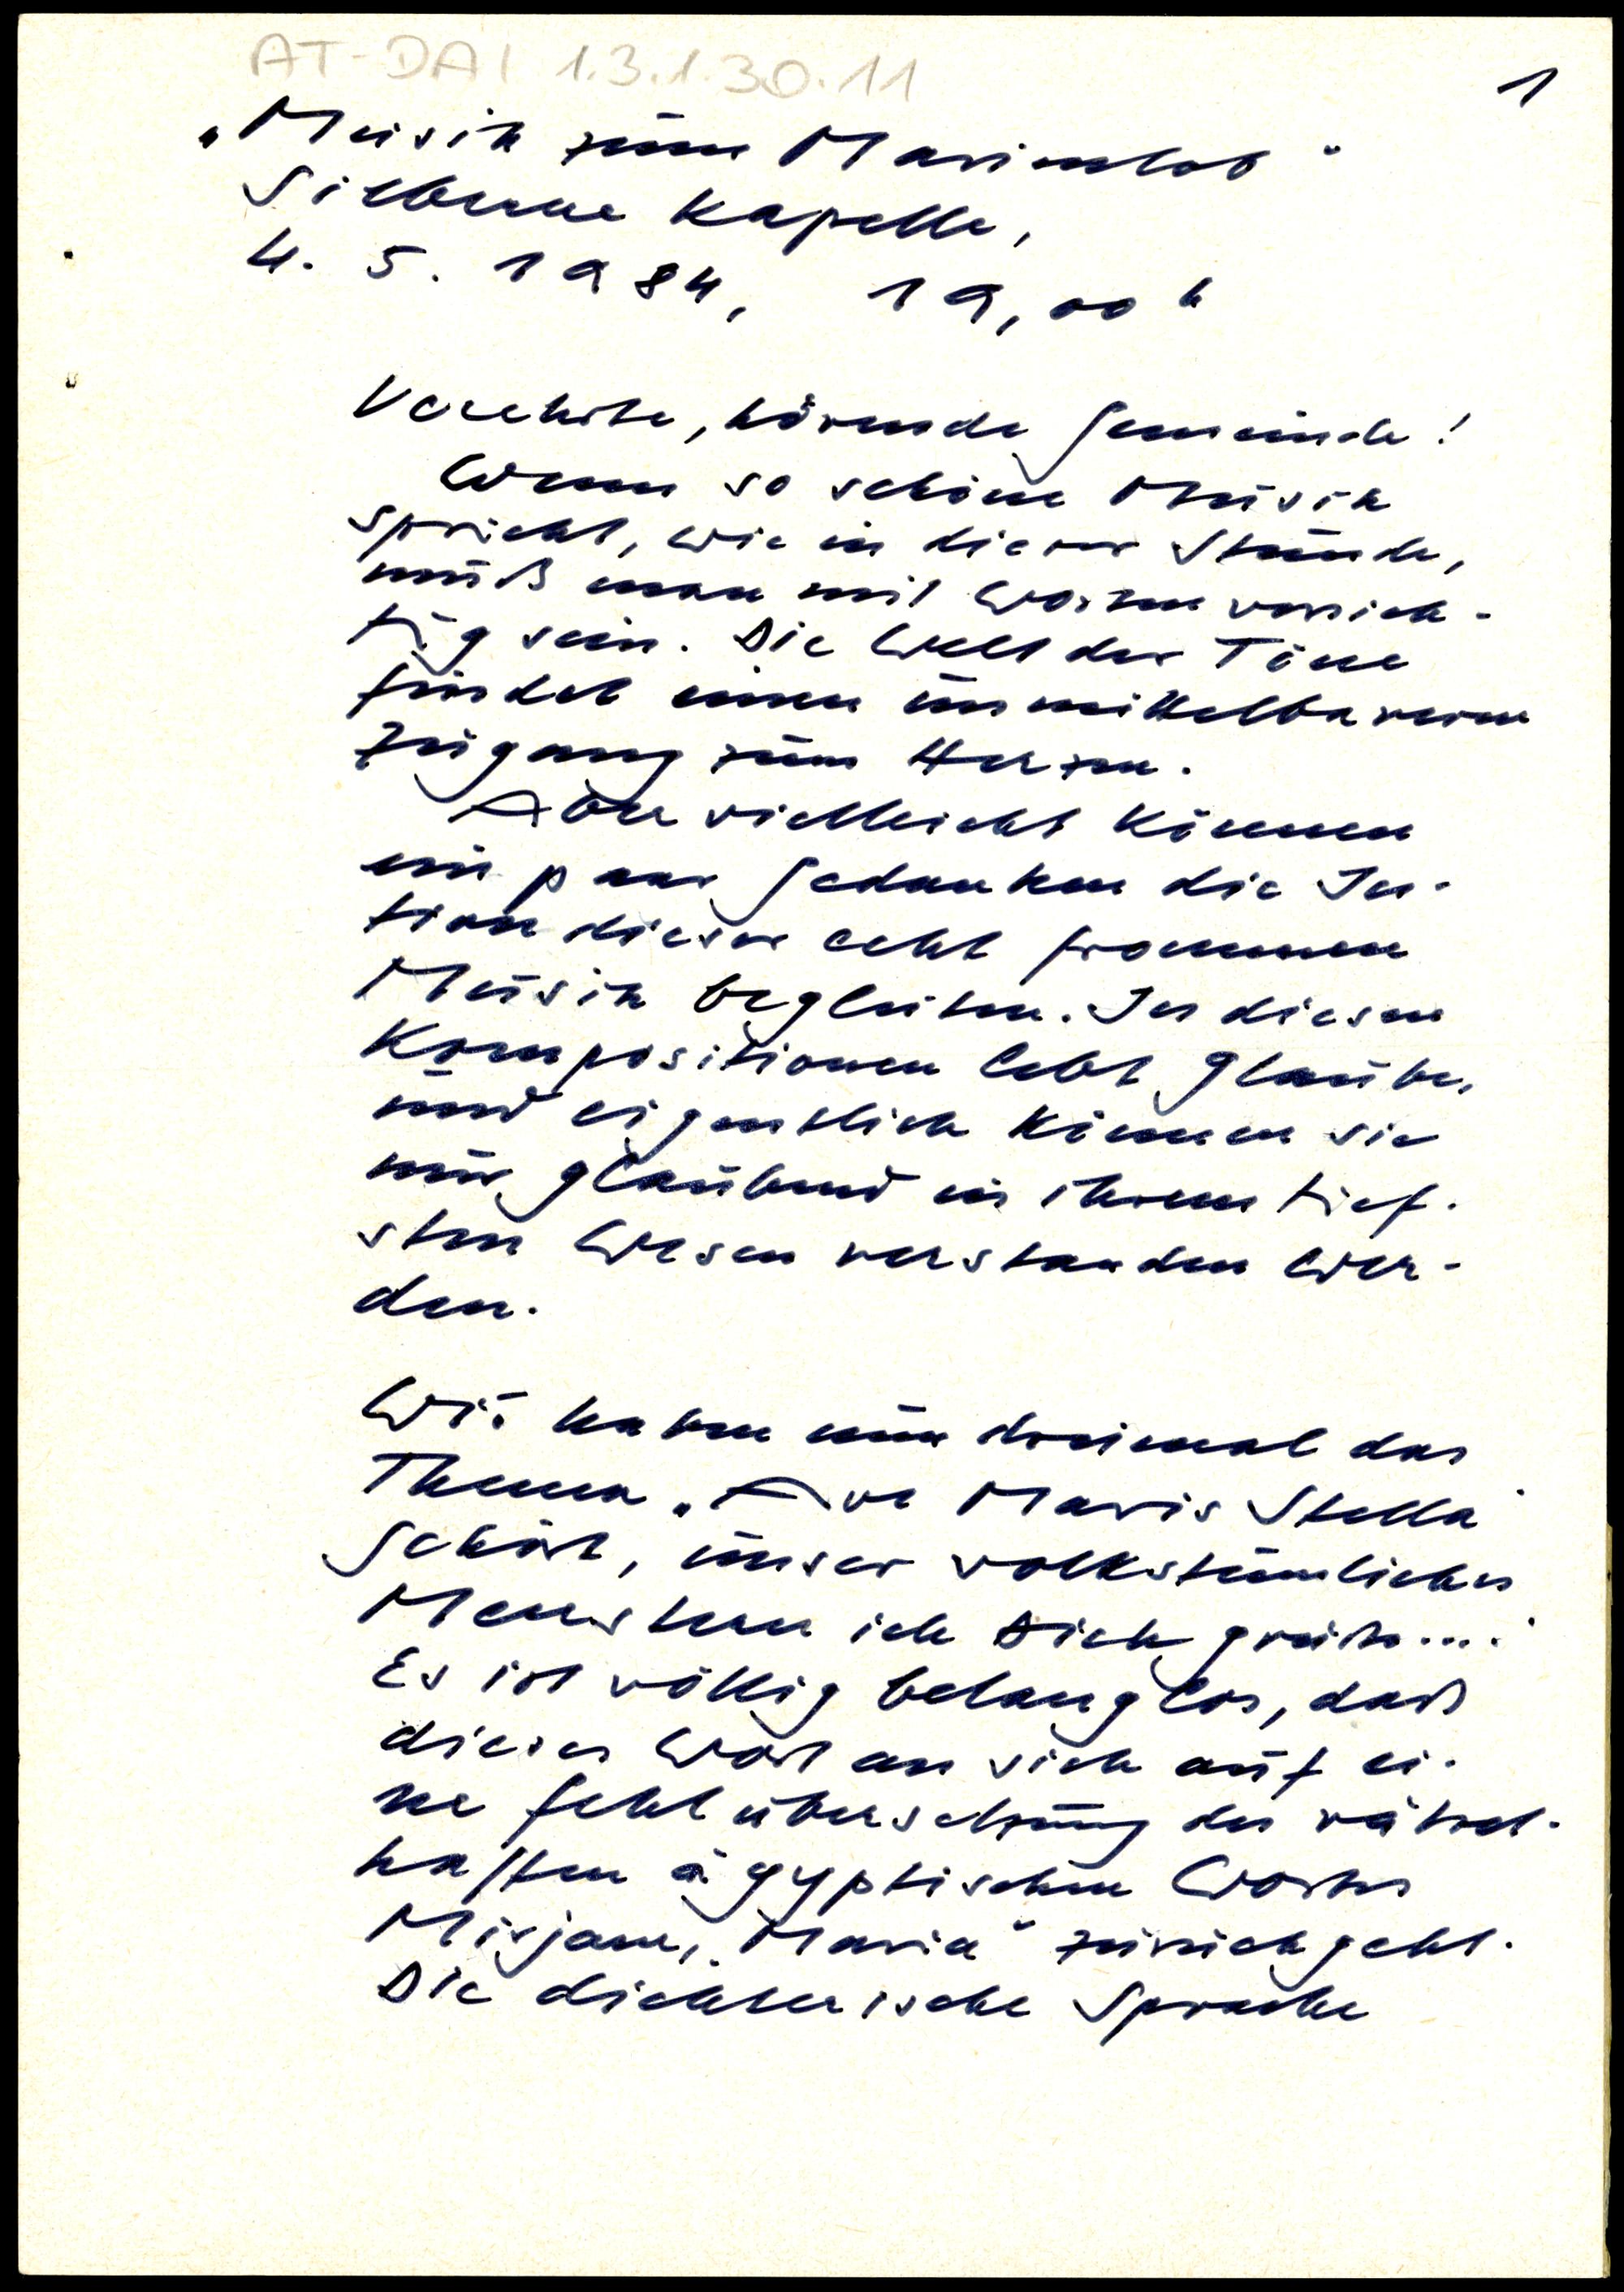 AT-DAI 1.3.1.30.11
1
„Musik zum Marienlob"
Silberne Kapelle,
4. 5. 1984, 19,00 h
Verehrte, hörende Gemeinde!
Wenn so schöne Musik
spricht, wie in dieser Stunde,
muß man mit Worten vorsich-
tig sein. Die Welt der Töne
findet einen unmittelbareren
Zugang zum Herzen.
Aber vielleicht können
ein paar Gedanken die In-
tion dieser echt frommen
Musik begleiten. In diesen
Kompositionen lebt Glaube,
und eigentlich können sie
nur glaubend in ihrem tief-
sten Wesen verstanden wer-
den.
Wir haben nun dreimal das
Thema „Ave Maris Stella"
gehört, unser volkstümliches
Meerstern ich Dich grüße...."
Es ist völlig belanglos, daß
dieses Wort an sich auf ei-
ne Fehlübersetzung des rätsel-
haften ägyptischen Wortes
Mirjam, „Maria" zurückgeht.
Die dichterische Sprache